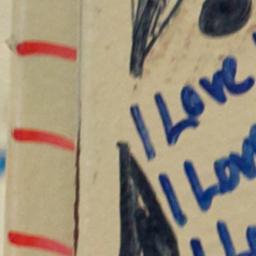 I Love
I Love